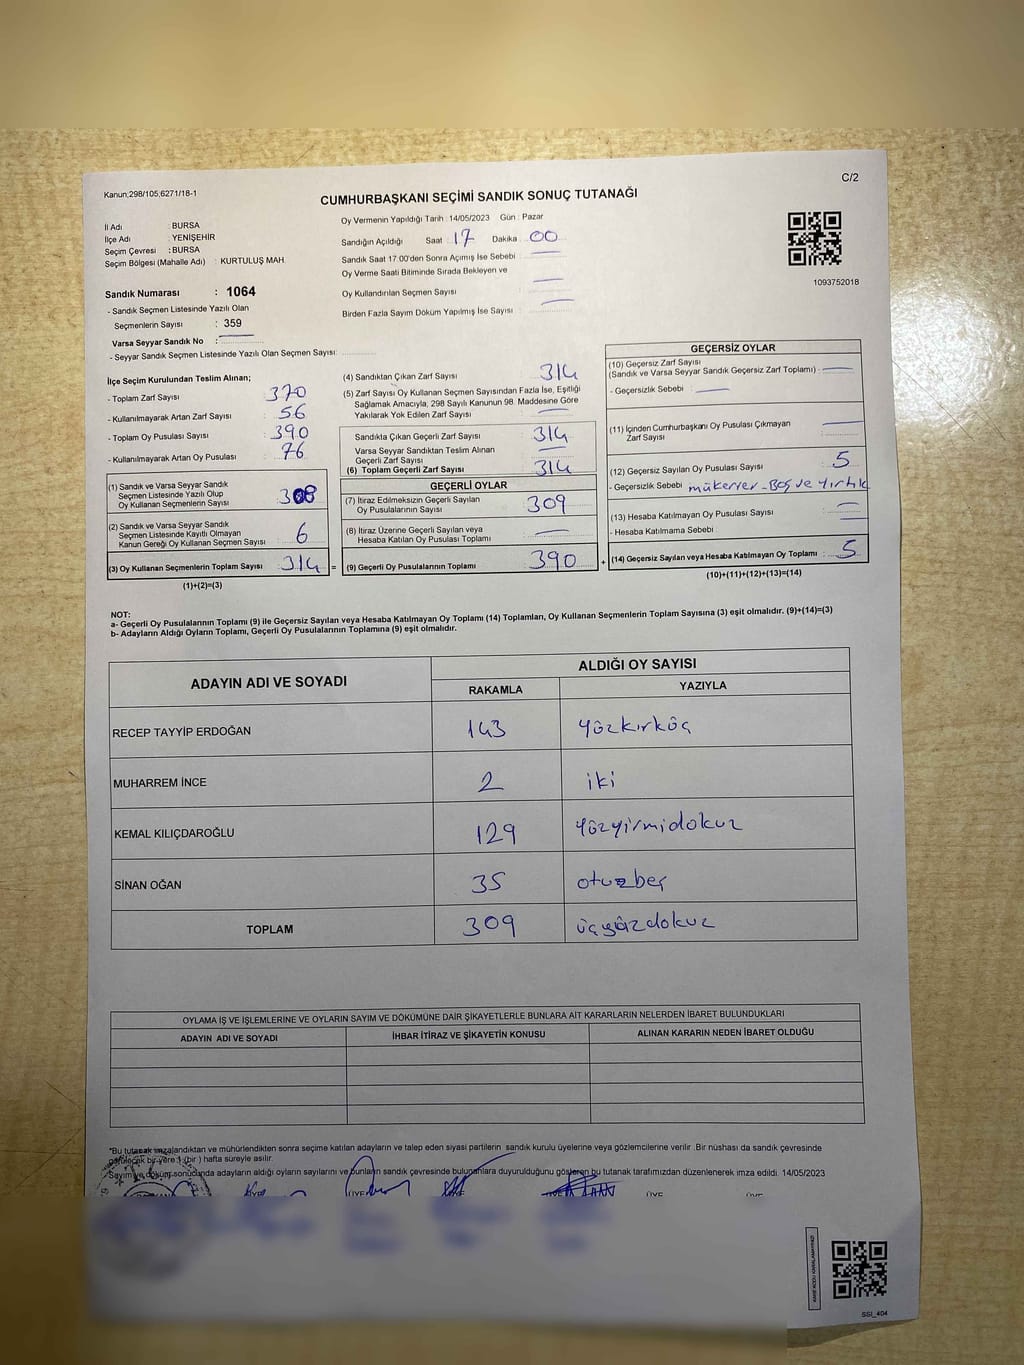 C/2
Kanun;298/105;6271/18-1
CUMHURBAŞKANI SEÇİMİ SANDIK SONUÇ TUTANAĞI
İl Adı : BURSA
İlçe Adı : YENİŞEHİR
Seçim Çevresi : BURSA
Seçim Bölgesi (Mahalle Adı) : KURTULUŞ MAH.
Sandık Numarası : 1064
- Sandık Seçmen Listesinde Yazılı Olan
Seçmenlerin Sayısı : 359
Varsa Seyyar Sandık No :
- Seyyar Sandık Seçmen Listesinde Yazılı Olan Seçmen Sayısı:
Oy Vermenin Yapıldığı Tarih : 14/05/2023 Gün : Pazar
Sandığın Açıldığı Saat 17 Dakika 00
Sandık Saat 17.00'den Sonra Açılmış İse Sebebi :
Oy Verme Saati Bitiminde Sırada Bekleyen ve
Oy Kullandırılan Seçmen Sayısı :
Birden Fazla Sayım Döküm Yapılmış İse Sayısı :
1093752018
İlçe Seçim Kurulundan Teslim Alınan;
- Toplam Zarf Sayısı : 370
- Kullanılmayarak Artan Zarf Sayısı : 56
- Toplam Oy Pusulası Sayısı : 390
- Kullanılmayarak Artan Oy Pusulası : 76
(1) Sandık ve Varsa Seyyar Sandık
Seçmen Listesinde Yazılı Olup
Oy Kullanan Seçmenlerin Sayısı : 308
(2) Sandık ve Varsa Seyyar Sandık
Seçmen Listesinde Kayıtlı Olmayan
Kanun Gereği Oy Kullanan Seçmen Sayısı : 6
(3) Oy Kullanan Seçmenlerin Toplam Sayısı : 314 =
(1)+(2)=(3)
(4) Sandıktan Çıkan Zarf Sayısı : 314
(5) Zarf Sayısı Oy Kullanan Seçmen Sayısından Fazla İse, Eşitliği
Sağlamak Amacıyla, 298 Sayılı Kanunun 98. Maddesine Göre
Yakılarak Yok Edilen Zarf Sayısı :
Sandıkta Çıkan Geçerli Zarf Sayısı : 314
Varsa Seyyar Sandıktan Teslim Alınan
Geçerli Zarf Sayısı :
(6) Toplam Geçerli Zarf Sayısı : 314
GEÇERLİ OYLAR
(7) İtiraz Edilmeksizin Geçerli Sayılan
Oy Pusulalarının Sayısı : 309
(8) İtiraz Üzerine Geçerli Sayılan veya
Hesaba Katılan Oy Pusulası Toplamı :
(9) Geçerli Oy Pusulalarının Toplamı : 390 +
GEÇERSİZ OYLAR
(10) Geçersiz Zarf Sayısı
(Sandık ve Varsa Seyyar Sandık Geçersiz Zarf Toplamı) :
- Geçersizlik Sebebi :
(11) İçinden Cumhurbaşkanı Oy Pusulası Çıkmayan
Zarf Sayısı :
(12) Geçersiz Sayılan Oy Pusulası Sayısı : 5
- Geçersizlik Sebebi : mükerrer-Boş ve Yırtık
(13) Hesaba Katılmayan Oy Pusulası Sayısı :
- Hesaba Katılmama Sebebi :
(14) Geçersiz Sayılan veya Hesaba Katılmayan Oy Toplamı : 5
(10)+(11)+(12)+(13)=(14)
NOT:
a- Geçerli Oy Pusulalarının Toplamı (9) ile Geçersiz Sayılan veya Hesaba Katılmayan Oy Toplamı (14) Toplamları, Oy Kullanan Seçmenlerin Toplam Sayısına (3) eşit olmalıdır. (9)+(14)=(3)
b- Adayların Aldığı Oyların Toplamı, Geçerli Oy Pusulalarının Toplamına (9) eşit olmalıdır.
ADAYIN ADI VE SOYADI ALDIĞI OY SAYISI
RAKAMLA YAZIYLA
RECEP TAYYİP ERDOĞAN 143 Yüzkırküç
MUHARREM İNCE 2 iki
KEMAL KILIÇDAROĞLU 129 Yüzyirmidokuz
SİNAN OĞAN 35 otuzbeş
TOPLAM 309 üçyüzdokuz
OYLAMA İŞ VE İŞLEMLERİNE VE OYLARIN SAYIM VE DÖKÜMÜNE DAİR ŞİKAYETLERLE BUNLARA AİT KARARLARIN NELERDEN İBARET BULUNDUKLARI
ADAYIN ADI VE SOYADI İHBAR İTİRAZ VE ŞİKAYETİN KONUSU ALINAN KARARIN NEDEN İBARET OLDUĞU
*Bu tutanak imzalandıktan ve mühürlendikten sonra seçime katılan adayların ve talep eden siyasi partilerin sandık kurulu üyelerine veya gözlemcilerine verilir. Bir nüshası da sandık çevresinde
görülecek bir yere 1 (bir) hafta süreyle asılır.
Sayım ve döküm sonucunda adayların aldığı oyların sayılarını ve bunların sandık çevresinde bulunanlara duyurulduğunu gösteren bu tutanak tarafımızdan düzenlenerek imza edildi. 14/05/2023
ÜYE ÜYE
SSI_404